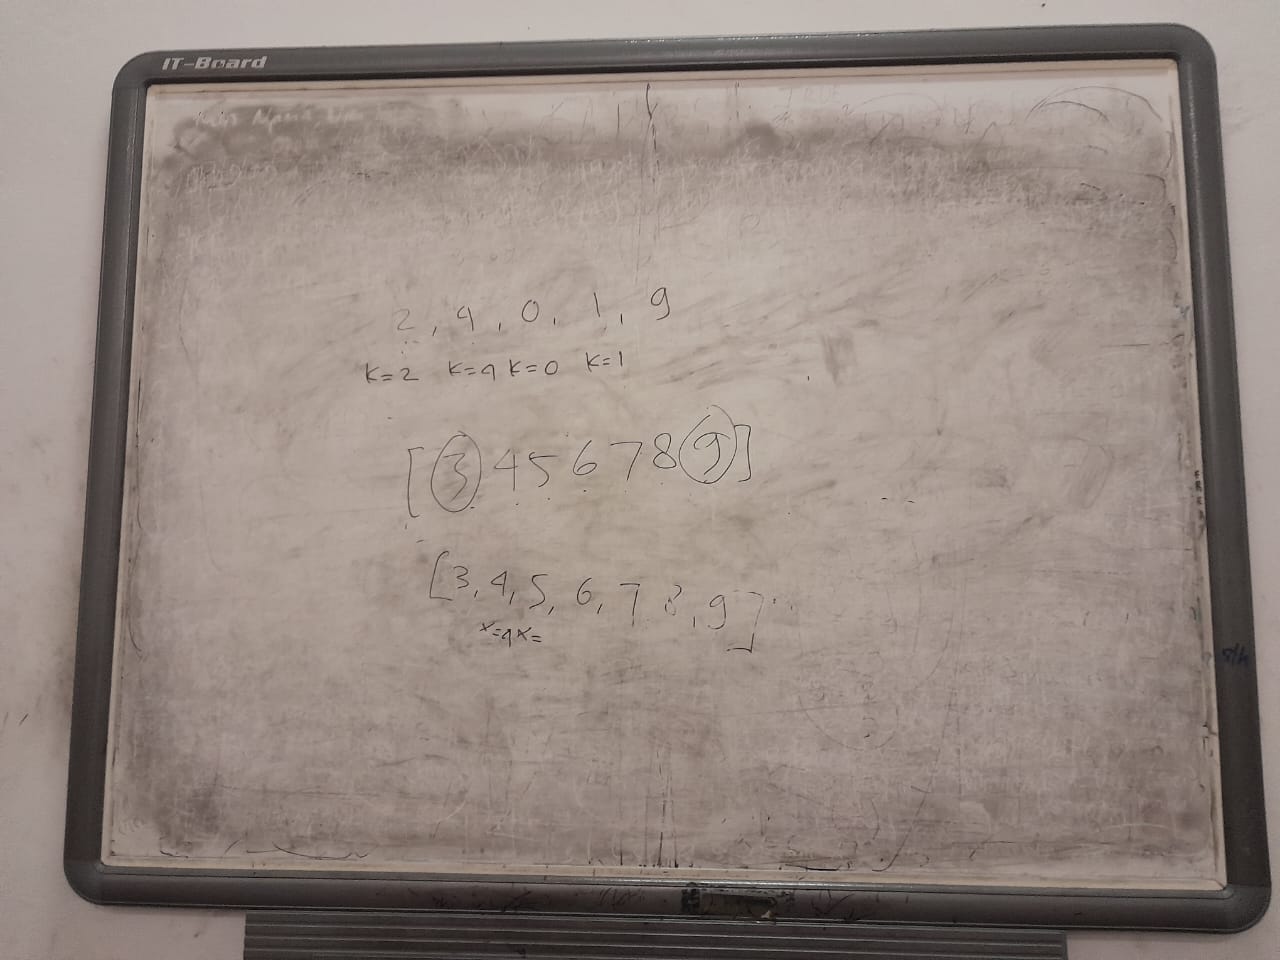 IT-Board
2, 4, 0, 1, 9
K=2 K=4 K=0 K=1
[3 4 5 6 7 8 9]
[3, 4, 5, 6, 7 8, 9]
x=4 x=